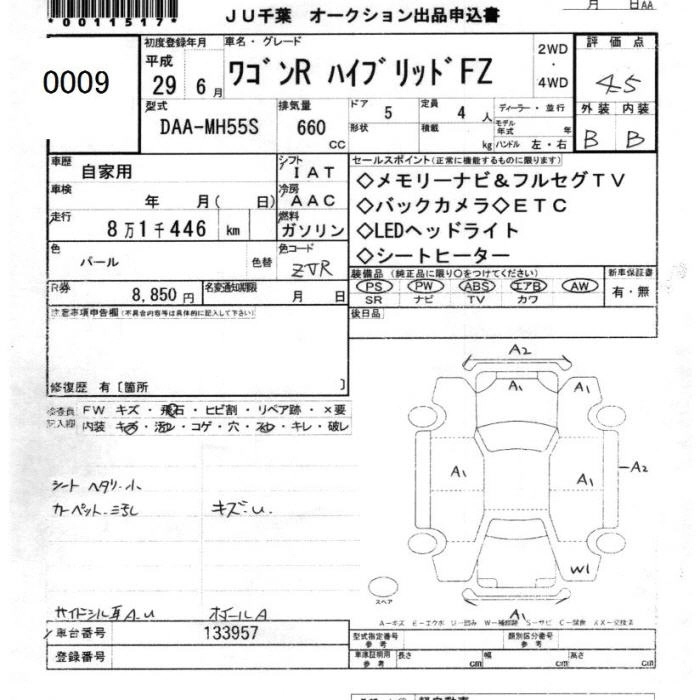 月 日AA
*0011517*
JU千葉 オークション出品申込書
0009
初度登録年月
平成
29 6月
車名・グレード
ワゴンR ハイブリッドFZ
2WD
・
4WD
評価点
4.5
外装 内装
B B
型式
DAA-MH55S
排気量
660
CC
ドア 5
形状
定員 4 人
積載 kg
ディーラー・並行
モデル年式 年
ハンドル 左・右
車歴
自家用
シフト
IAT
車検
年 月( 日)
冷房
AAC
走行
8万1千446 km
燃料
ガソリン
色
パール
色替
色コード
ZVR
R券
8,850円
名変通知期限
月 日
セールスポイント(正常に機能するものに限ります)
◇メモリーナビ&フルセグTV
◇バックカメラ◇ETC
◇LEDヘッドライト
◇シートヒーター
装備品(純正品に限り○をつけてください)
PS PW ABS エアB AW
SR ナビ TV カワ
新車保証書
有・無
後日品
注意事項申告欄(不具合内容等は具体的に記入して下さい)
修復歴 有〔箇所 〕
検査員記入欄
FW キズ・飛石・ヒビ割・リペア跡・×要
内装 キズ・汚れ・コゲ・穴・スレ・キレ・破レ
シート ヘタリ小
カーペット
キズ.U.
サイドシル耳 A.U
ホイールA
A2
A1
A1
A1
A1
A1
A2
W1
A1
スペア
A-キズ E-エクボ U-凹み W-補修跡 S-サビ C-腐食 XX-交換済
車台番号 133957
登録番号
型式指定番号
参考
類別区分番号
参考
車庫証明用
参考
長さ cm
幅 cm
高さ cm
軽自動車